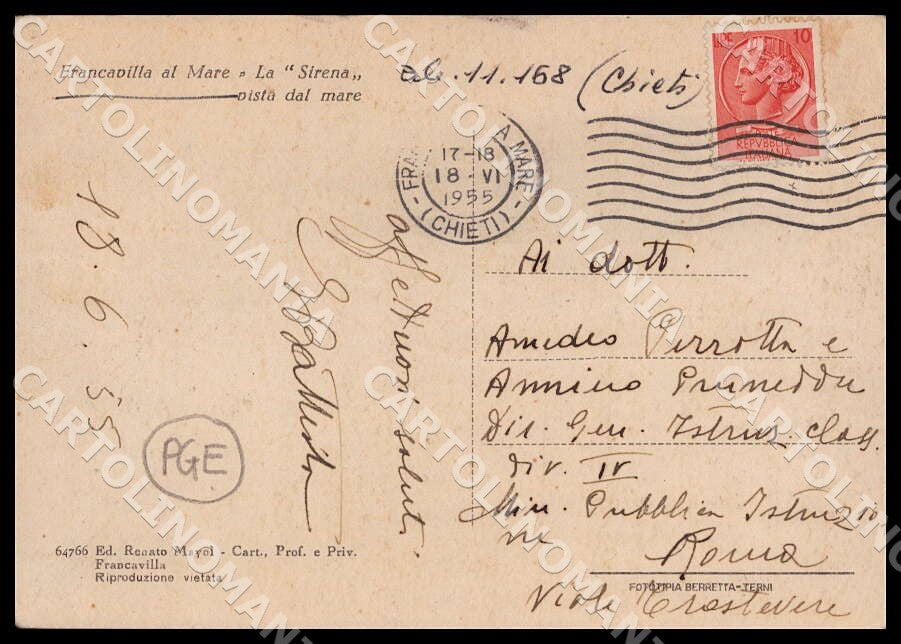 Francavilla al Mare - La "Sirena„
vista dal mare
11.168 (Chieti)
LIRE 10
REPVBBLICA
ITALIANA
A MARE
17-18
18-VI
1955
(CHIETI)
18. 6. 55
affettuosi saluti
PGE
Ai dott.
Amedeo Perrotta e
Annino Pruneddu
Dir. Gen. Istruz. Class.
Div. IV
Min. Pubblica Istruzio
ne
Roma
Viale Trastevere
64766 Ed. Renato Mayol - Cart., Prof. e Priv.
Francavilla
Riproduzione vietata
FOTOTIPIA BERRETTA-TERNI
CARTOLINOMANIA